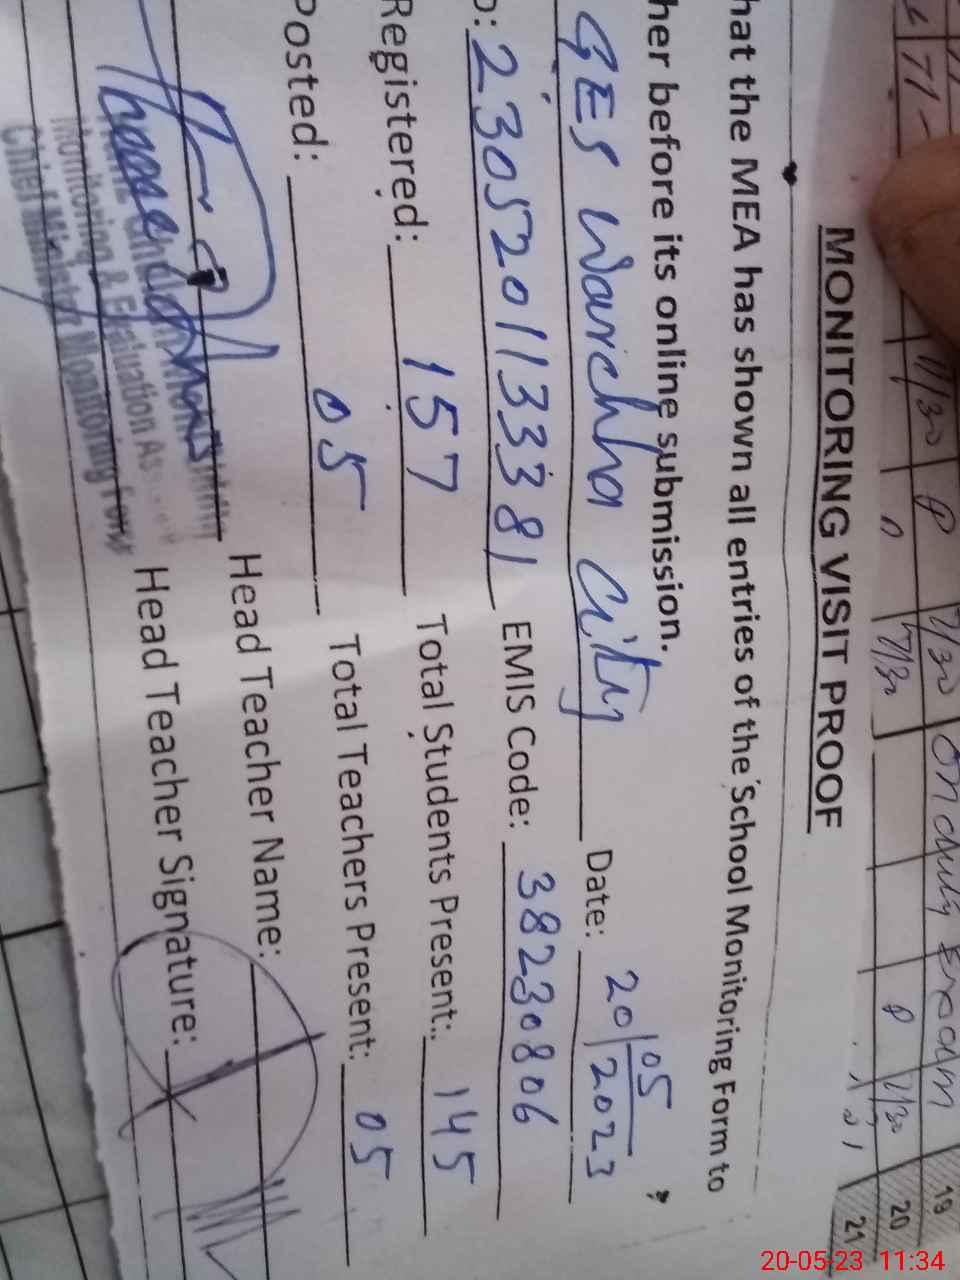 MONITORING VISIT PROOF
hat the MEA has shown all entries of the School Monitoring Form to
her before its online submission.
GES Warchha City Date: 20/05/2023
D: 2305201133381 EMIS Code: 38230806
Registered: 157 Total Students Present: 145
Posted: 05 Total Teachers Present: 05
Head Teacher Name:
Head Teacher Signature:
Monitoring & Evaluation As
Chief Minister Monitoring Force
7/30 8 7/30 On duty
0 7/30 8 7/30
19
20
21
20-05-23 11:34